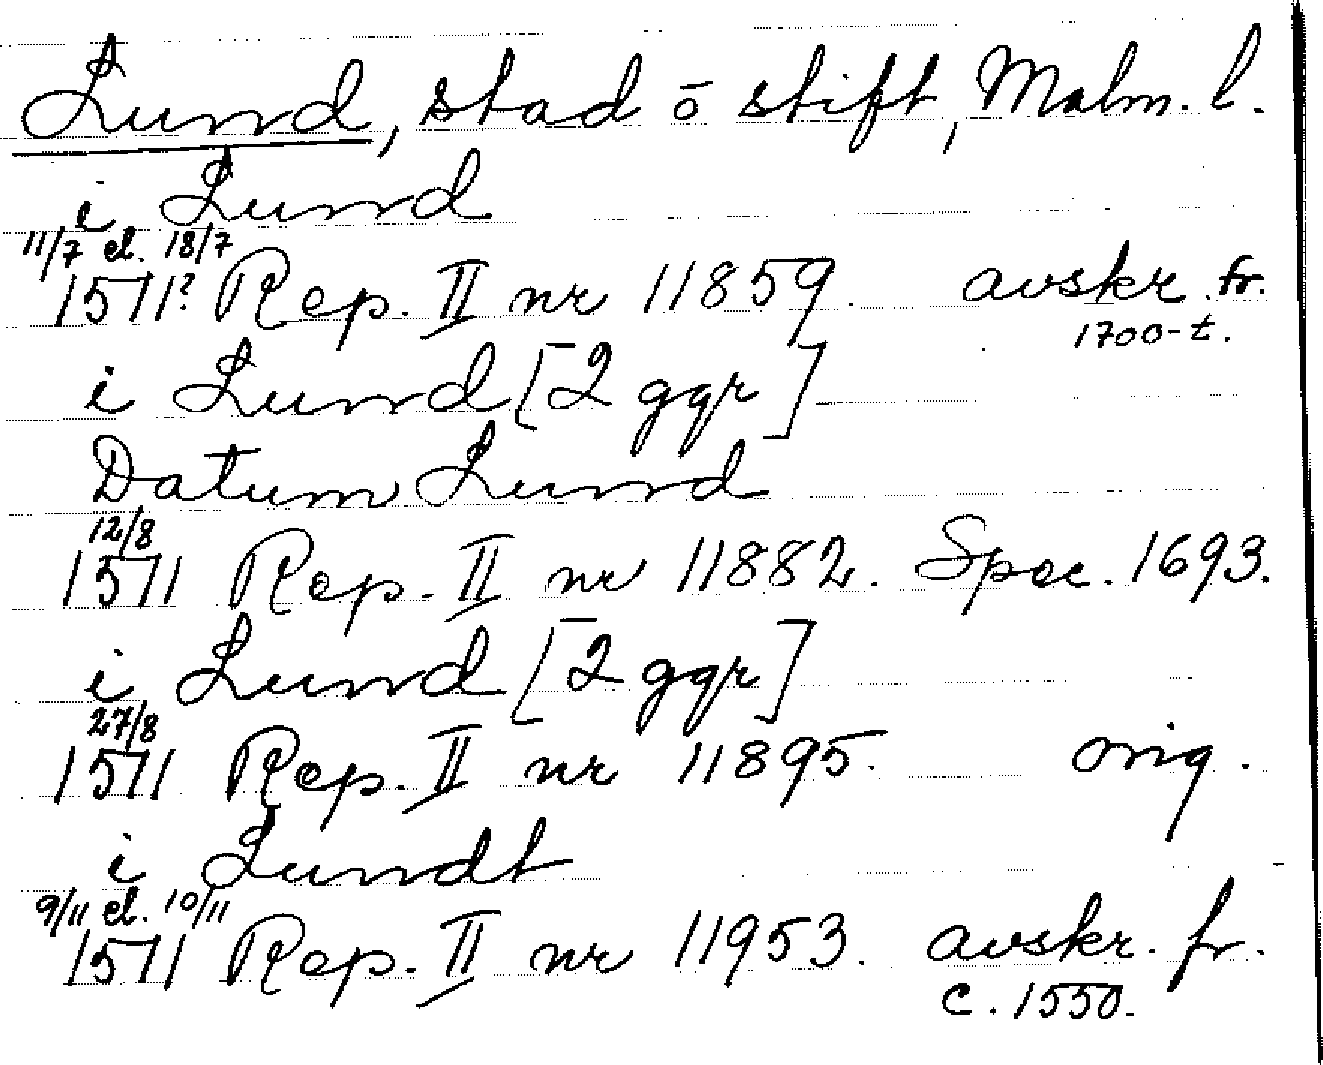 Lund, stad o stift, Malm. l.
i Lund
11/7 el. 18/7
1511? Rep. II nr 11859. avskr. fr.
1700-t.
i Lund [2 ggr]
Datum Lund
12/8
1511 Rep. II nr 11882. Spec. 1693.
i Lund [2 ggr]
27/8
1511 Rep. II nr 11895. orig.
i Lundt
9/11 el. 10/11
1511 Rep. II nr 11953. avskr. fr.
c. 1550.